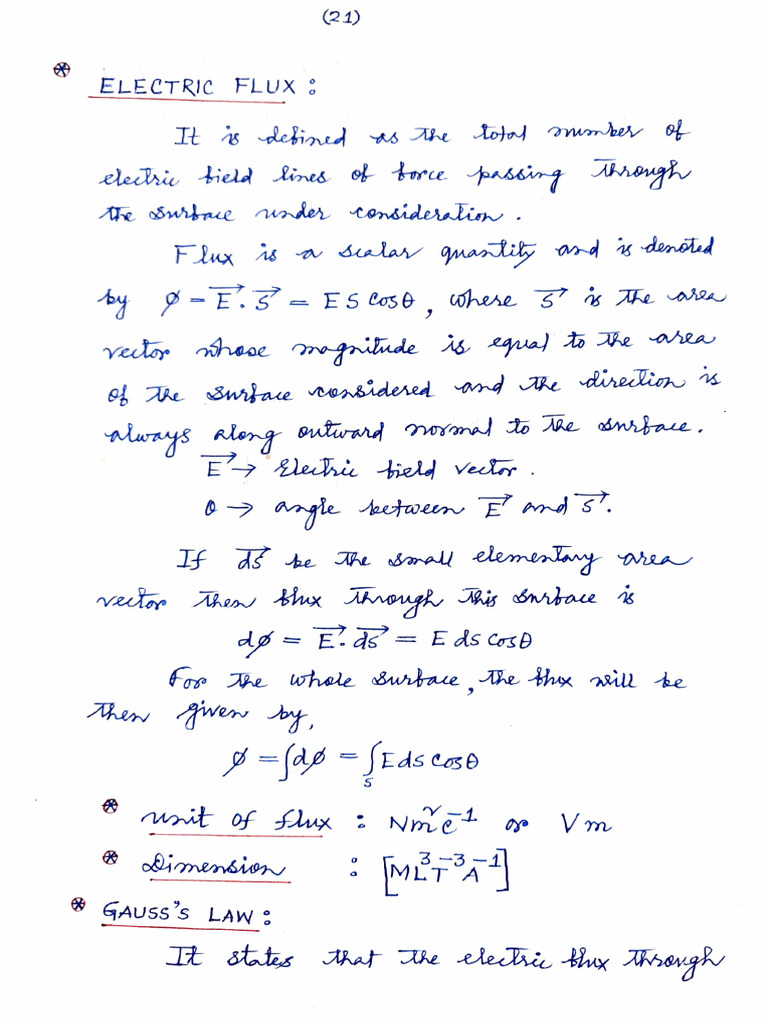 (21)
ELECTRIC FLUX :
It is defined as the total number of
electric field lines of force passing through
the surface under consideration.
Flux is a scalar quantity and is denoted
by φ = E⃗ . S⃗ = E S cosθ, where S⃗ is the area
vector whose magnitude is equal to the area
of the surface considered and the direction is
always along outward normal to the surface.
E⃗ → Electric field vector.
θ → angle between E⃗ and S⃗.
If ds⃗ be the small elementary area
vector then flux through this surface is
dφ = E⃗. ds⃗ = E ds cosθ
For the whole surface, the flux will be
then given by,
φ = ∫dφ = ∫ₛ E ds cosθ
unit of flux : Nm²C⁻¹ or Vm
Dimension : [ML³T⁻³A⁻¹]
GAUSS'S LAW :
It states that the electric flux through